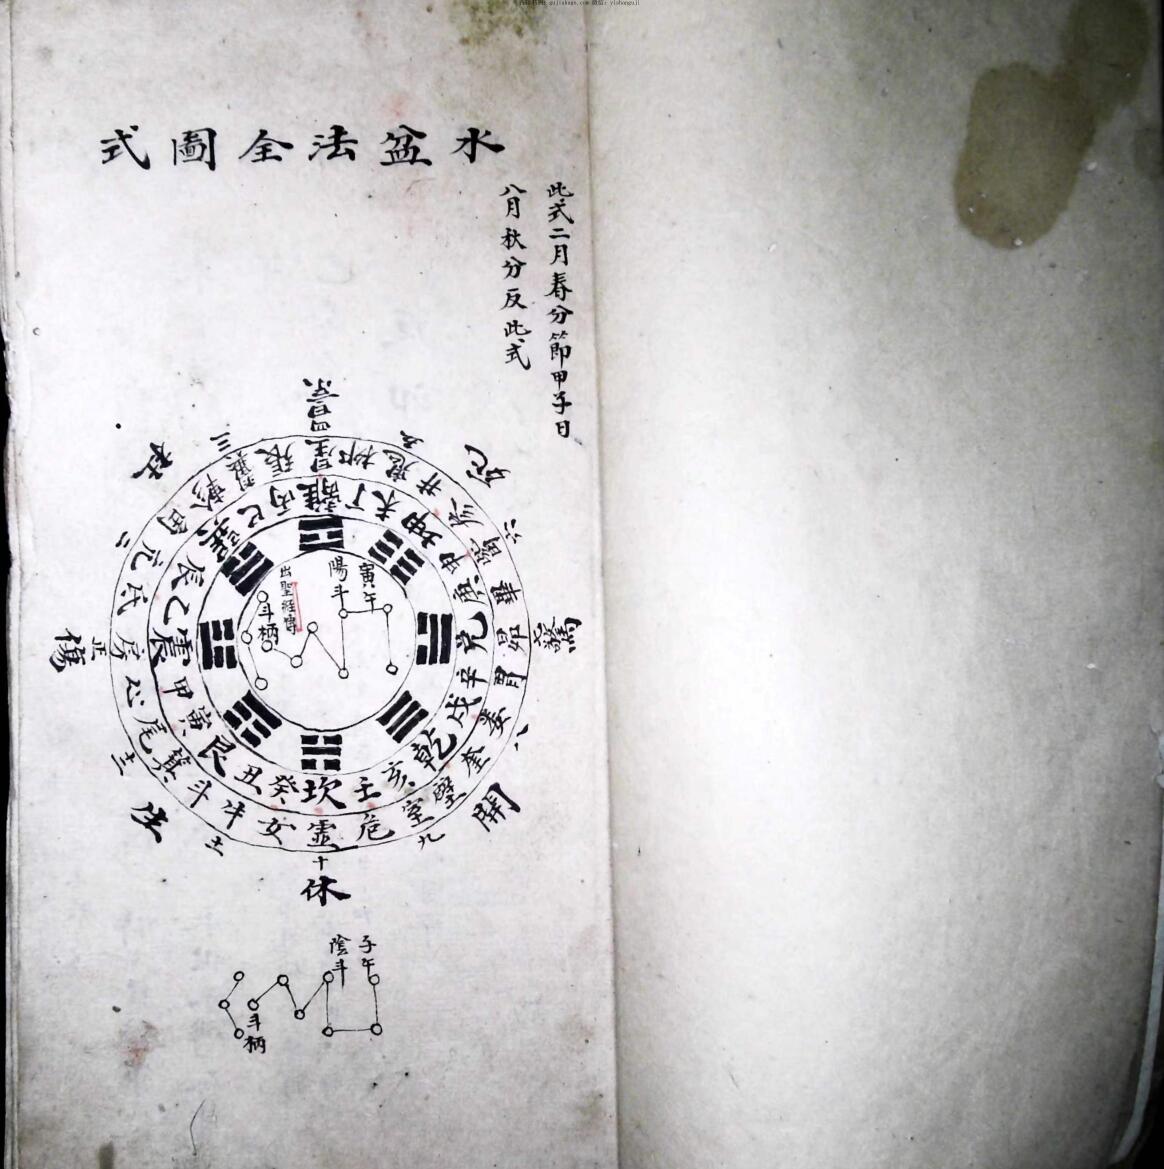 水盆法全圖式
此式二月春分節甲子日
八月秋分反此式
景
四
死
五
六
驚
七
八
開
九
十
休
土
生
土
傷
正
二
杜
三
星柳鬼井參觜畢昴胃婁奎壁室危虛女牛斗箕尾心房氐亢角軫翼張
離丁未坤申庚兌辛戌乾亥壬坎癸丑艮寅甲震乙辰巽巳丙
寅午
陽斗
出聖經傳
斗柄
子午
陰斗
斗柄